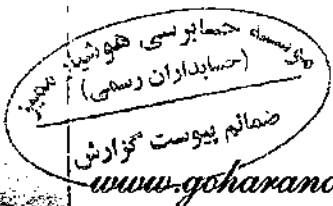 موسسه حسابرسی هوشیار ممیز
(حسابداران رسمی)
ضمائم پیوست گزارش
www.goharana